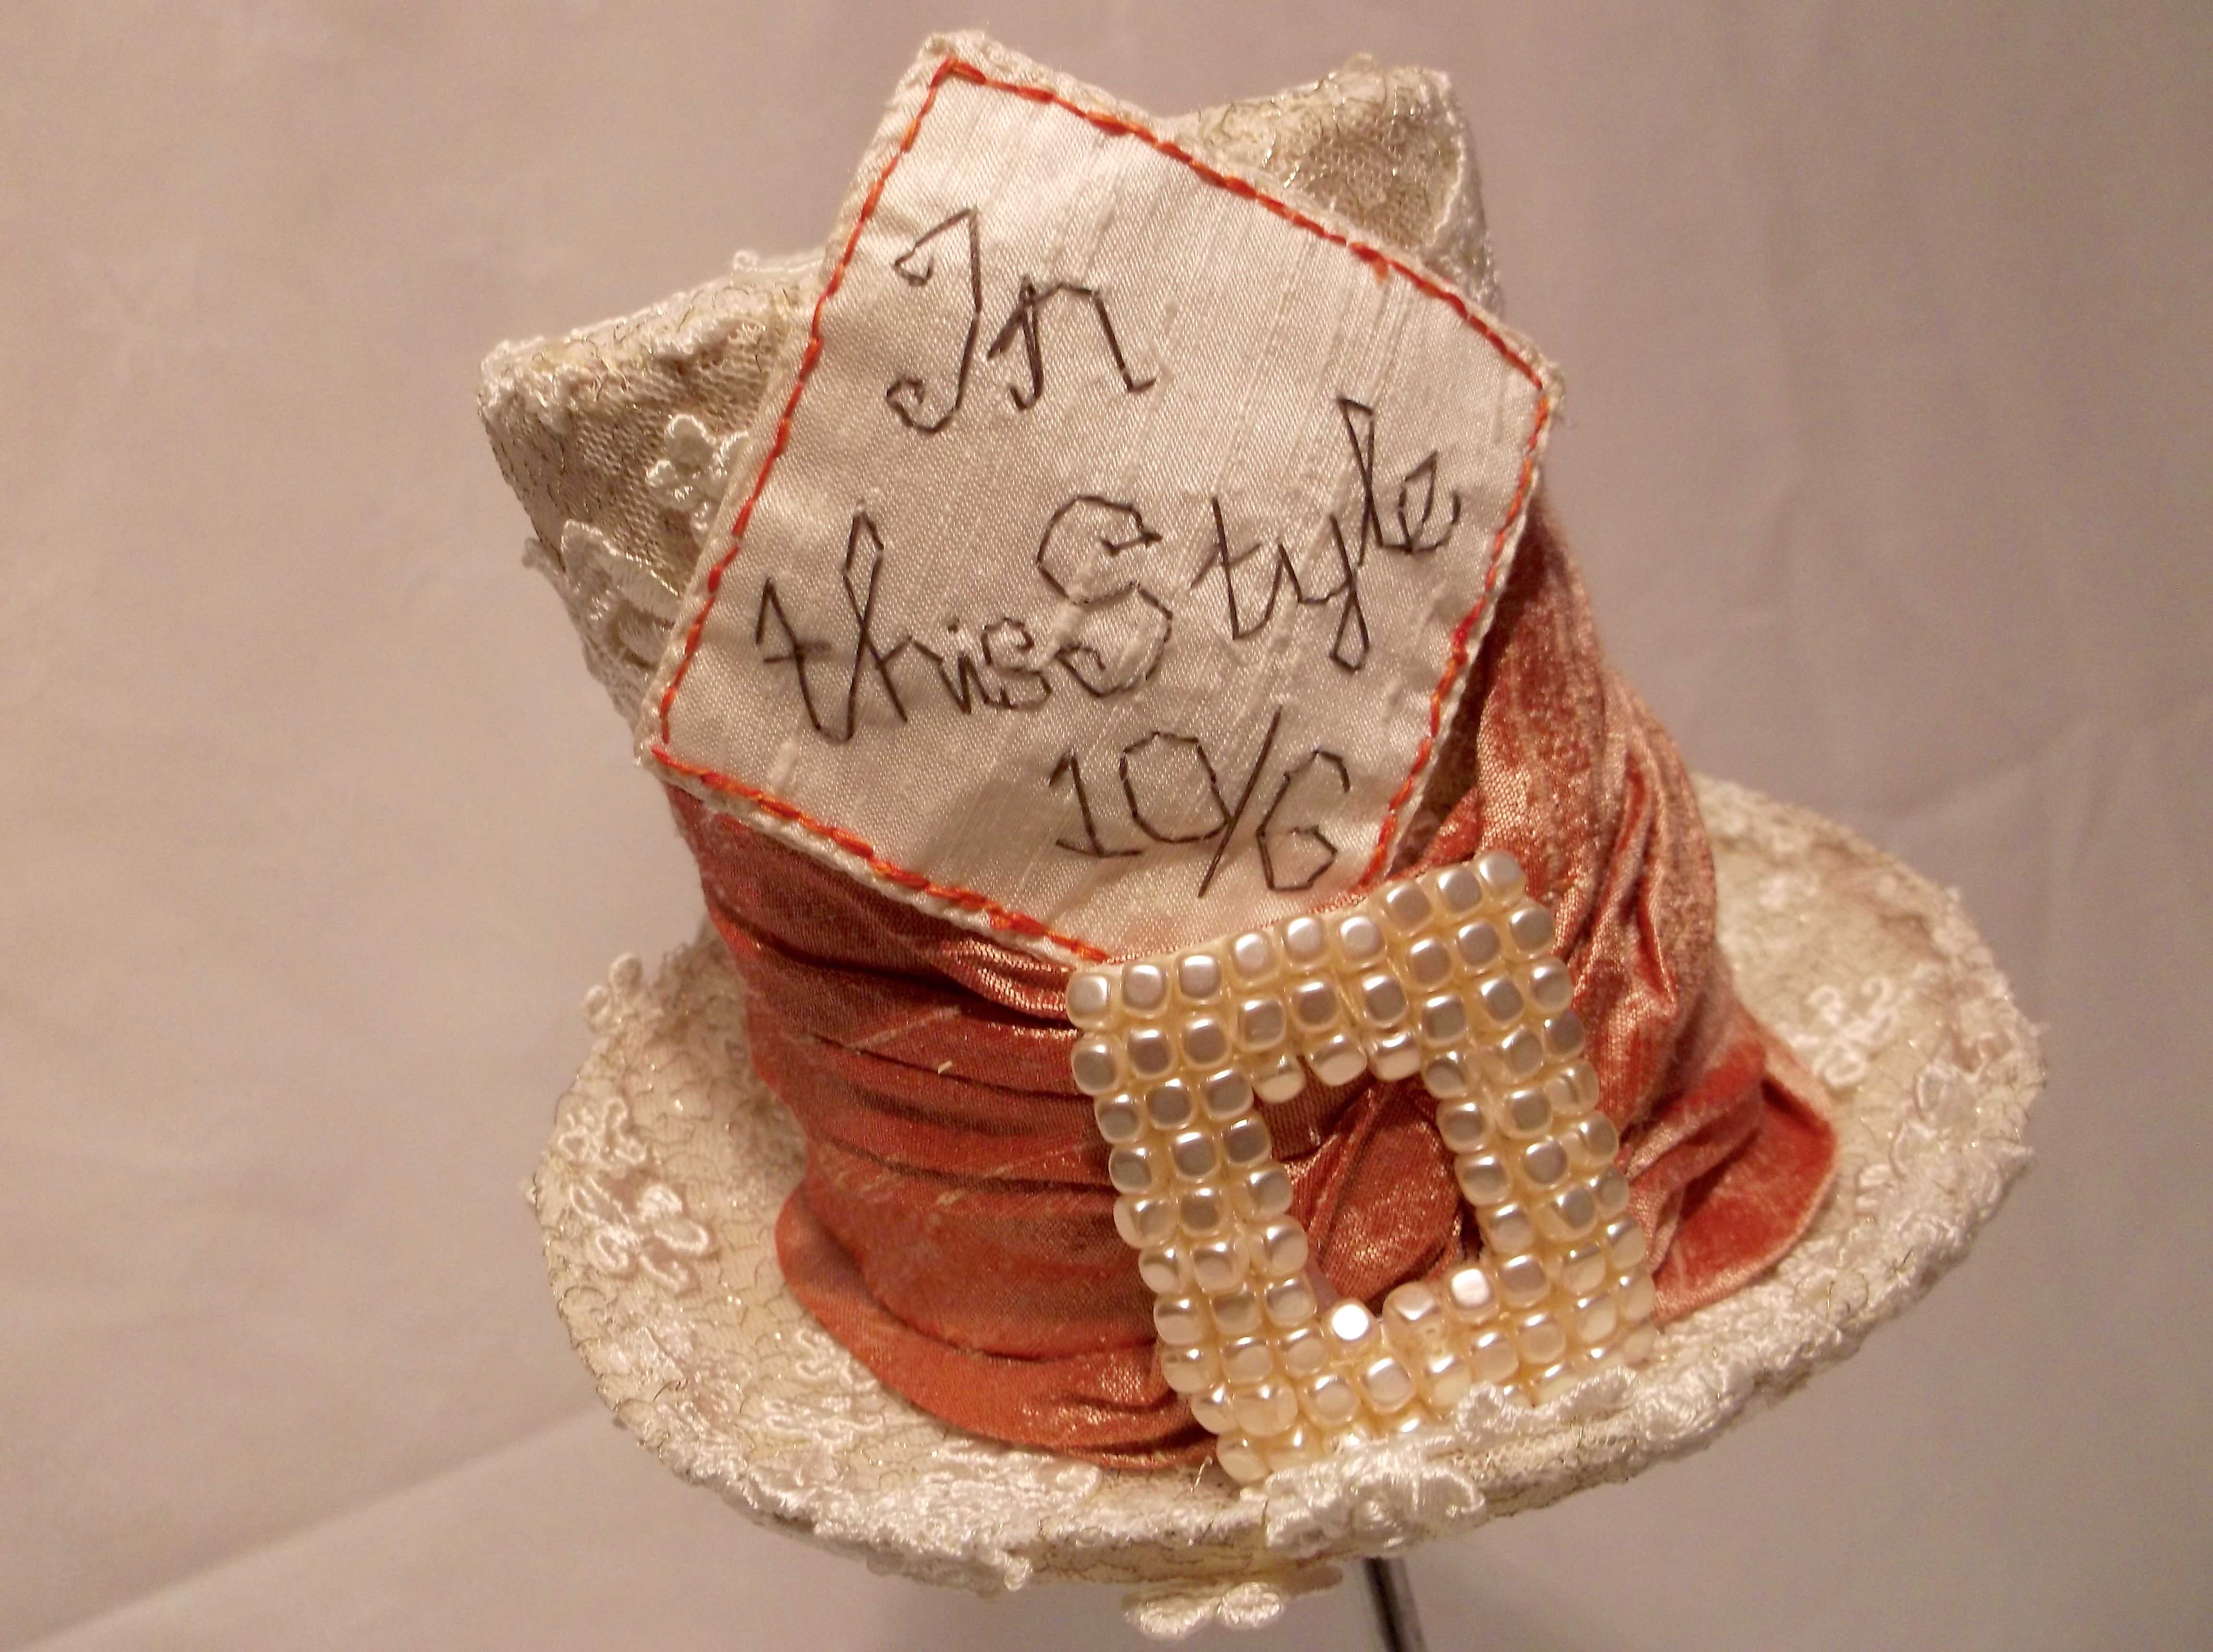 In
this Style
10/6